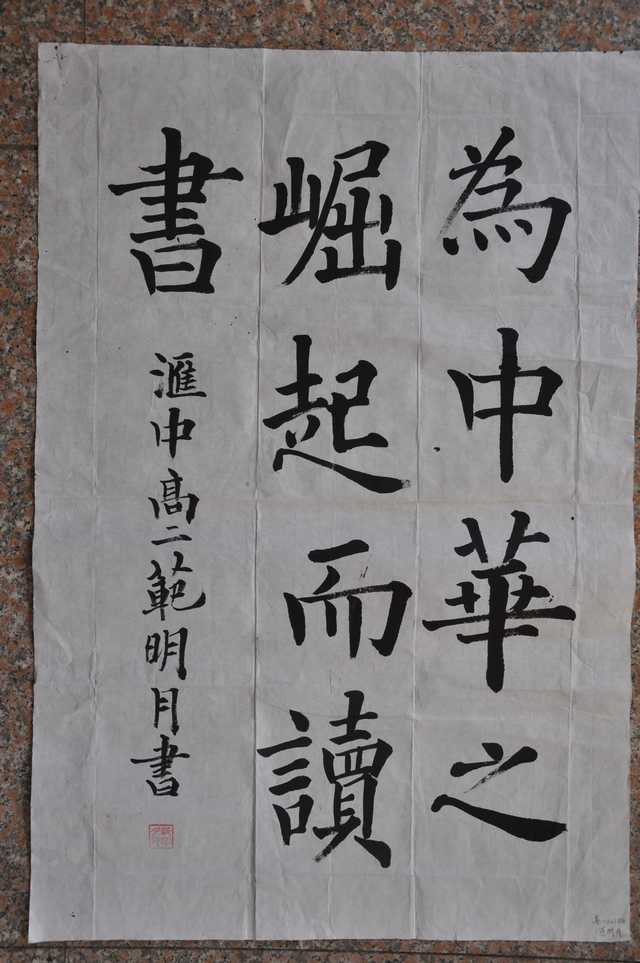 為中華之
崛起而讀
書
滙中高二範明月書